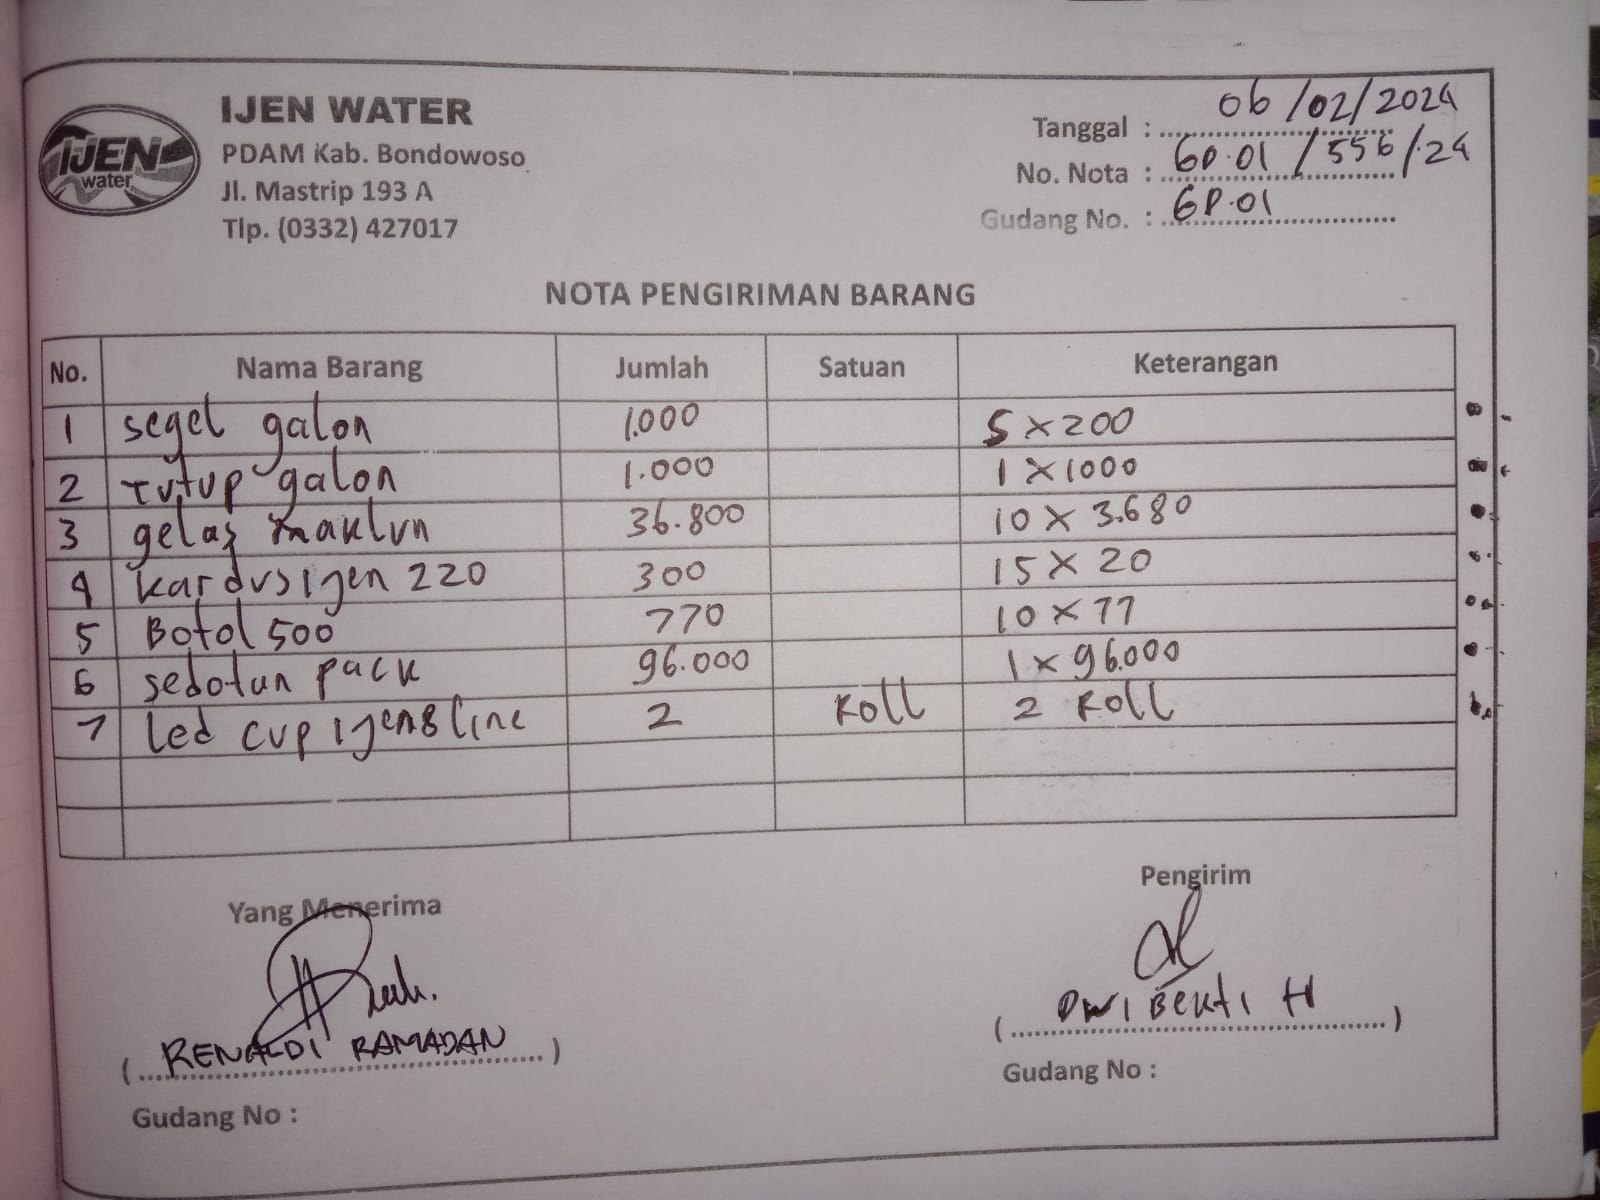 IJEN
water
IJEN WATER
PDAM Kab. Bondowoso
Jl. Mastrip 193 A
Tlp. (0332) 427017
Tanggal : 06/02/2024
No. Nota : GP.01/556/24
Gudang No. : GP.01
NOTA PENGIRIMAN BARANG
No. Nama Barang Jumlah Satuan Keterangan
1 segel galon 1.000 5 x 200
2 Tutup galon 1.000 1 x 1000
3 gelas maklun 36.800 10 x 3.680
4 kardus ijen 220 300 15 x 20
5 Botol 500 770 10 x 77
6 sedotan pack 96.000 1 x 96.000
7 led cup ijen 8 line 2 Roll 2 Roll
Yang Menerima
Pengirim
( RENALDI RAMADAN )
( DWI BEKTI H )
Gudang No :
Gudang No :